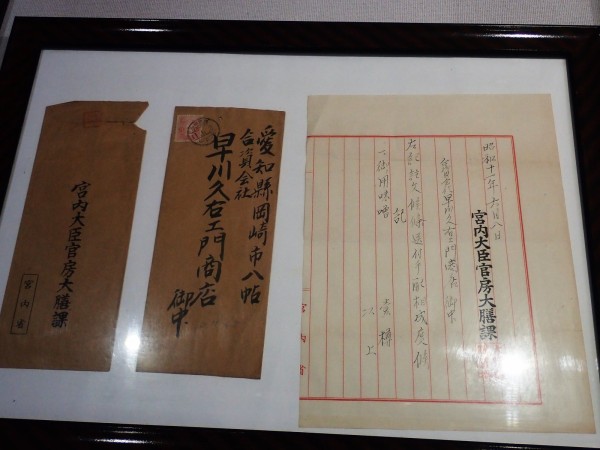 宮内大臣官房大膳課
宮内省
愛知縣岡崎市八帖
合資会社
早川久右エ門商店
御中
昭和十一年六月八日
宮内大臣官房大膳課
合資会社早川久右エ門商店 御中
右記註文候條送付手配相成度候
記
一御用味噌 壱樽
以上
宮内省